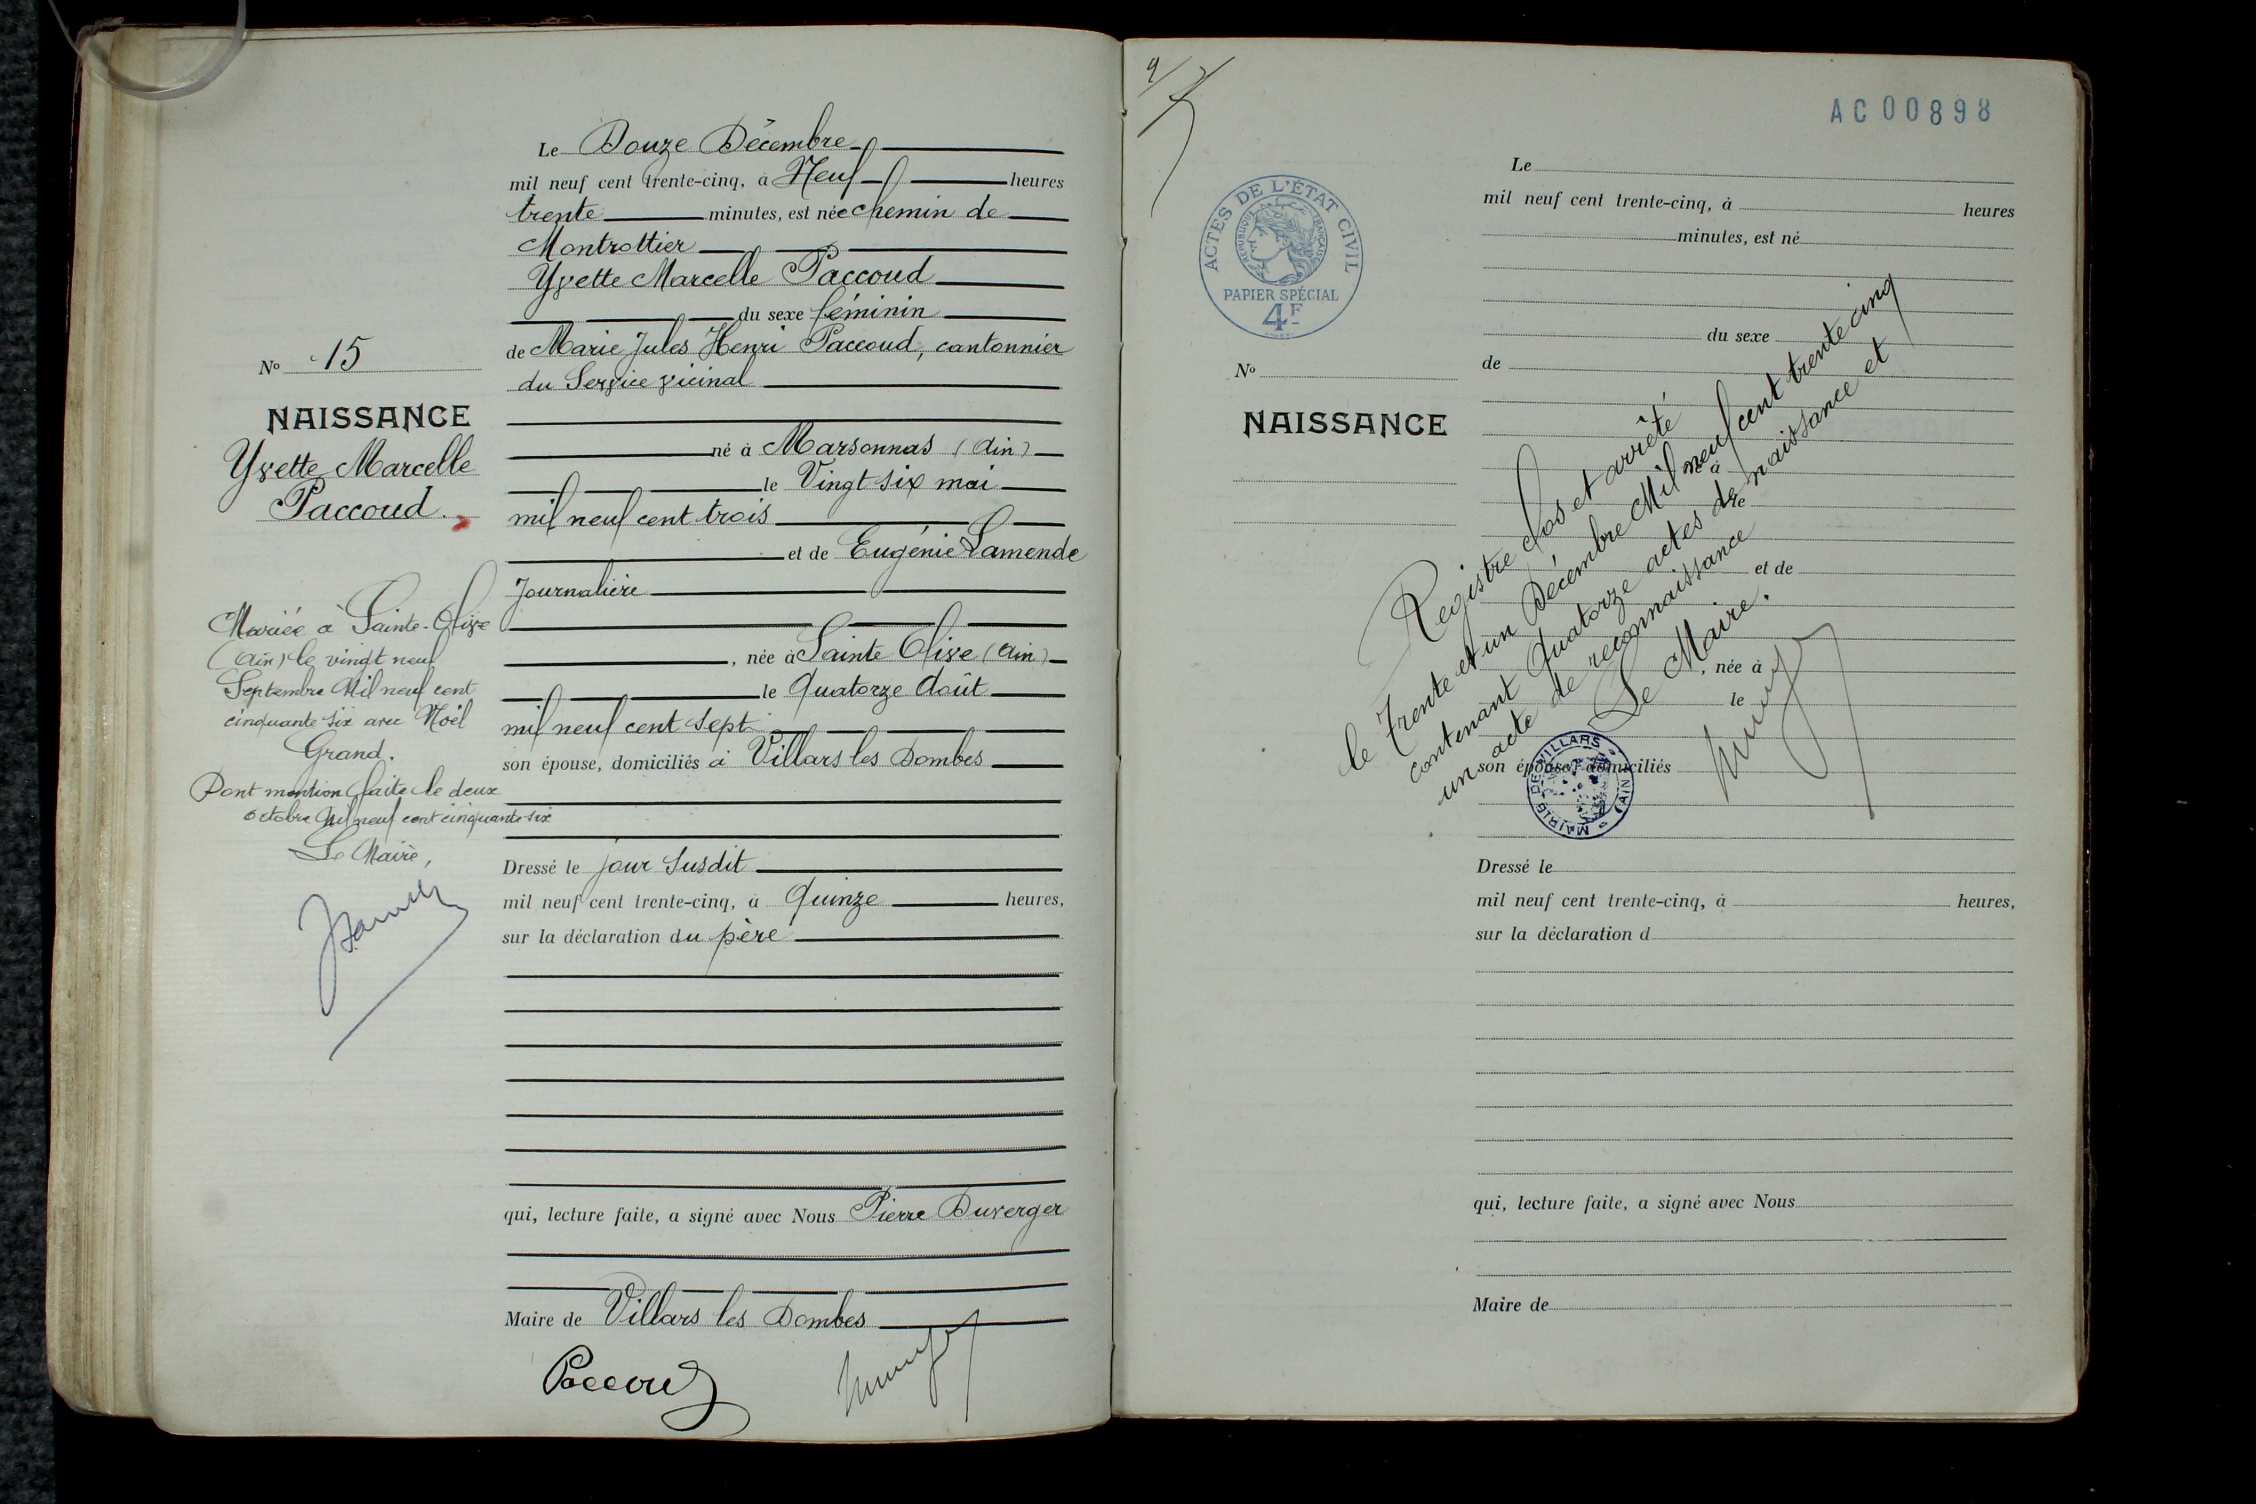 Le Douze Décembre
mil neuf cent trente-cinq, à Neuf heures
trente minutes, est née chemin de
Montrottier
Yvette Marcelle Paccoud
du sexe féminin
de Marie Jules Henri Paccoud, cantonnier
du Service vicinal
né à Marsonnas (Ain)
le Vingt six mai
mil neuf cent trois
et de Eugénie Lamende
Journalière
, née à Sainte Olive (Ain)
le Quatorze Août
mil neuf cent sept
son épouse, domiciliés à Villars les Dombes
Dressé le jour susdit
mil neuf cent trente-cinq, à Quinze heures,
sur la déclaration du père
qui, lecture faite, a signé avec Nous Pierre Duverger
Maire de Villars les Dombes
Paccoud
No 15
NAISSANCE
Yvette Marcelle
Paccoud.
Mariée à Sainte-Olive
(Ain) le vingt neuf
Septembre Mil neuf cent
cinquante six avec Noël
Grand.
Dont mention faite le deux
octobre Mil neuf cent cinquante-six
Le Maire,
AC00898
ACTES DE L'ÉTAT CIVIL
RÉPUBLIQUE FRANÇAISE
PAPIER SPÉCIAL
4F
No
NAISSANCE
Le
mil neuf cent trente-cinq, à heures
minutes, est né
du sexe
de
né à
le
et de
, née à
le
son épouse, domiciliés
Dressé le
mil neuf cent trente-cinq, à heures,
sur la déclaration d
qui, lecture faite, a signé avec Nous
Maire de
Registre clos et arrêté
le Trente et un Décembre Mil neuf cent trente cinq
contenant Quatorze actes de naissance et
un acte de reconnaissance
Le Maire.
MAIRIE DE VILLARS (AIN)